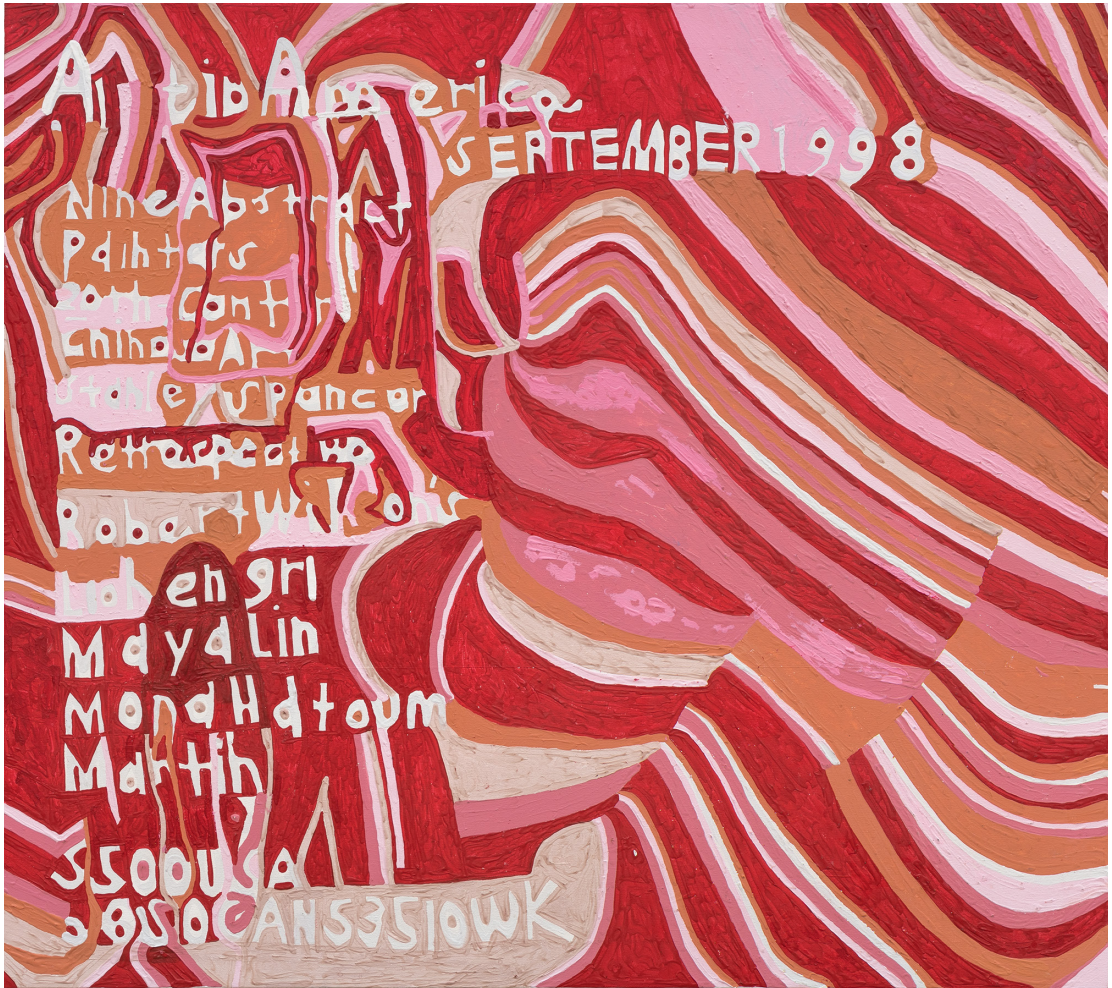 ArtinAmerica
SEPTEMBER 1998
Nine Abstract
Painters
20th Cent
Chinese Ar
Stanley Spencer
Retrospective
Robert Wilson's
Lohengri
Maya Lin
Mona Hatoum
Martin
$500USA
$850CAN £3.510WK